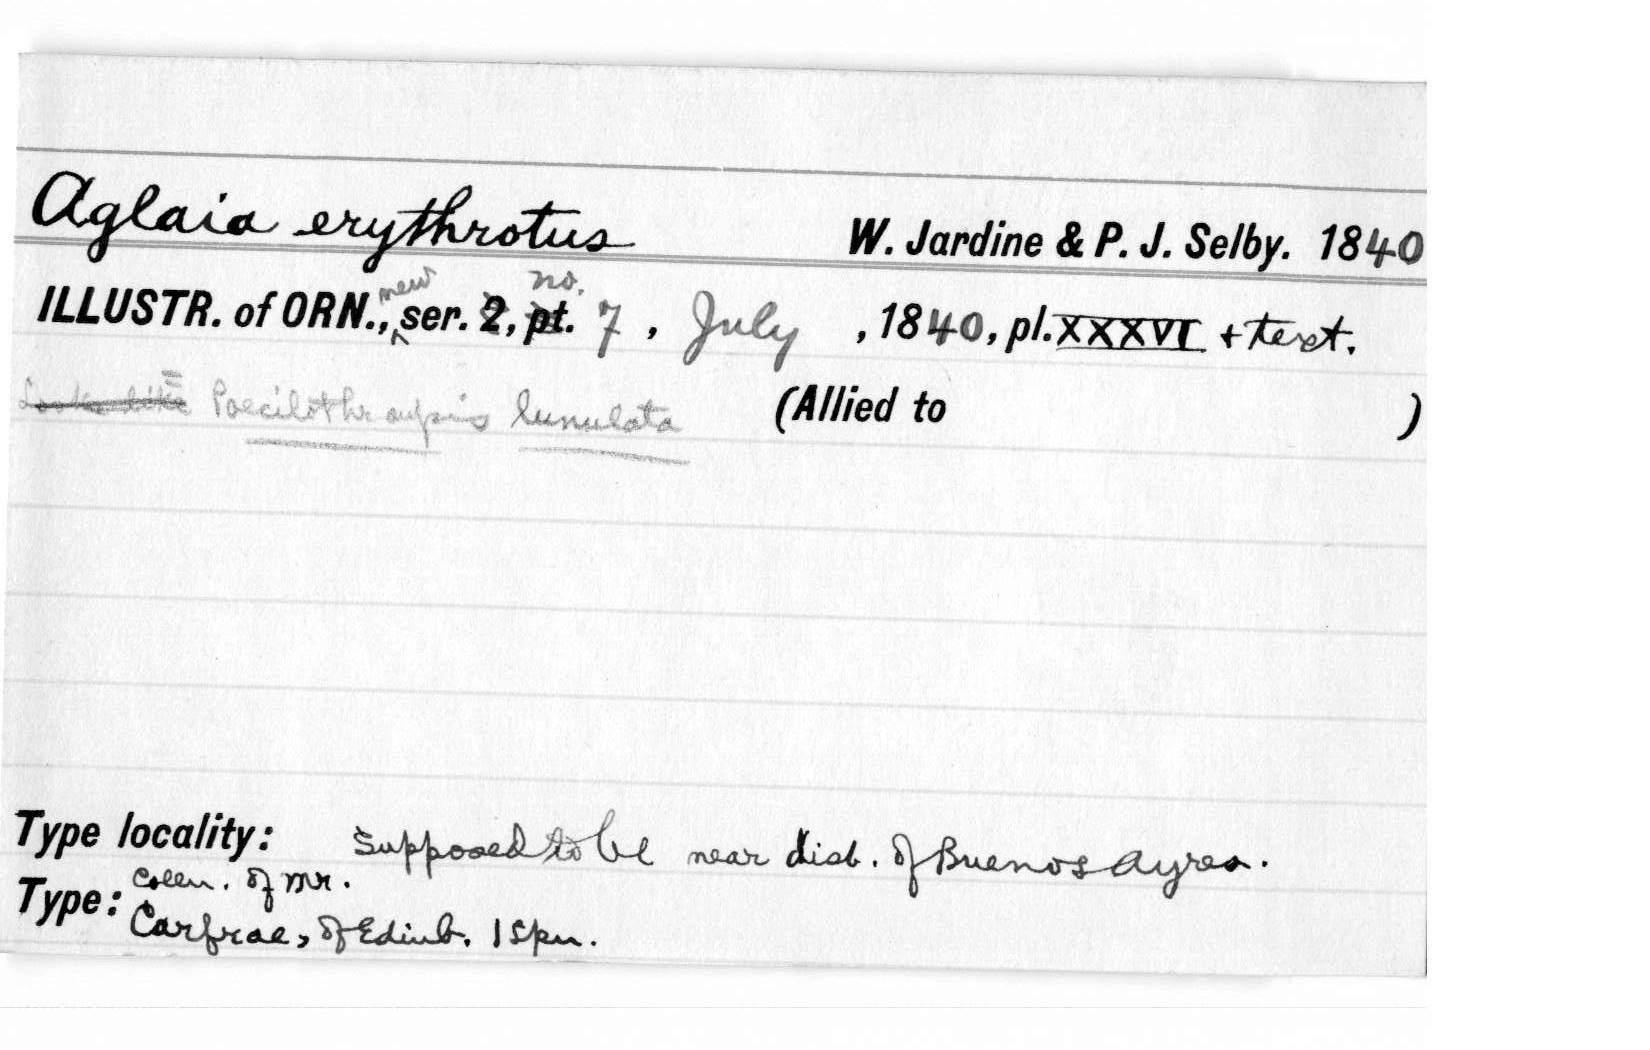 Aglaia erythrotus W. Jardine & P. J. Selby. 1840
ILLUSTR. of ORN., new ser. 2, pt. no. 7, July, 1840, pl. XXXVI + text.
Looks like = Poecilothraupis lunulata (Allied to )
Type locality: Supposed to be near dist. of Buenos Ayres.
Type: Colln. of Mr.
Carfrae, of Edinb. 1 spn.